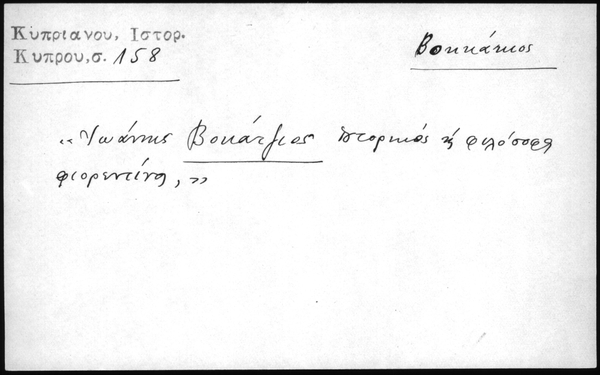 Κυπριανου, Ιστορ.
Κυπρου,σ. 158
Βοκκάκιος
«Ἰωάννης Βοκάτζιος ἱστορικός ϗ φιλόσοφος
φιορεντίνος,»